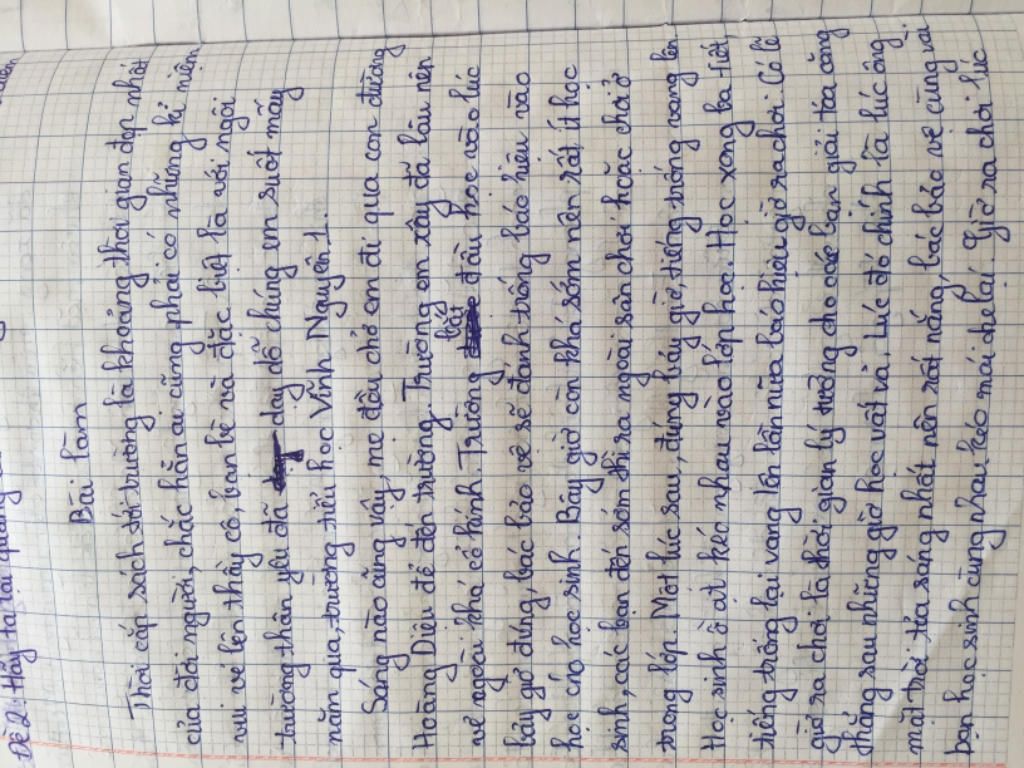 Đề 2: Hãy tả lại quang
Bài làm
Thời cắp sách tới trường là khoảng thời gian đẹp nhất
của đời người, chắc hẳn ai cũng phải có những kỉ niệm
vui vẻ lên thầy cô, bạn bè và đặc biệt là với ngôi
trường thân yêu đã dạy dỗ chúng em suốt mấy
năm qua, trường tiểu học Vĩnh Nguyên 1.
Sáng nào cũng vậy, mẹ đều chở em đi qua con đường
Hoàng Diệu để đến trường. Trường em xây đã lâu nên
vẻ ngoài khá cổ kính. Trường bắt đầu học vào lúc
bảy giờ đúng, bác bảo vệ sẽ đánh trống báo hiệu vào
học cho học sinh. Bây giờ còn khá sớm nên rất ít học
sinh, các bạn đến sớm thì ra ngoài sân chơi hoặc chơi ở
trong lớp. Một lúc sau, đúng bảy giờ, tiếng trống vang lên
Học sinh ồ ạt kéc nhau vào lớp học. Học xong ba tiết,
tiếng trống lại vang lên lần nữa báo hiệu giờ ra chơi. Có lẽ
giờ ra chơi là thời gian lý tưởng cho các bạn giải tỏa căng
thẳng sau những giờ học vất vả. Lúc đó chính là lúc ông
mặt trời tỏa sáng nhất nên rất nắng, bác bảo vệ cùng vài
bạn học sinh cùng nhau kéo mái che lại. Giờ ra chơi lúc